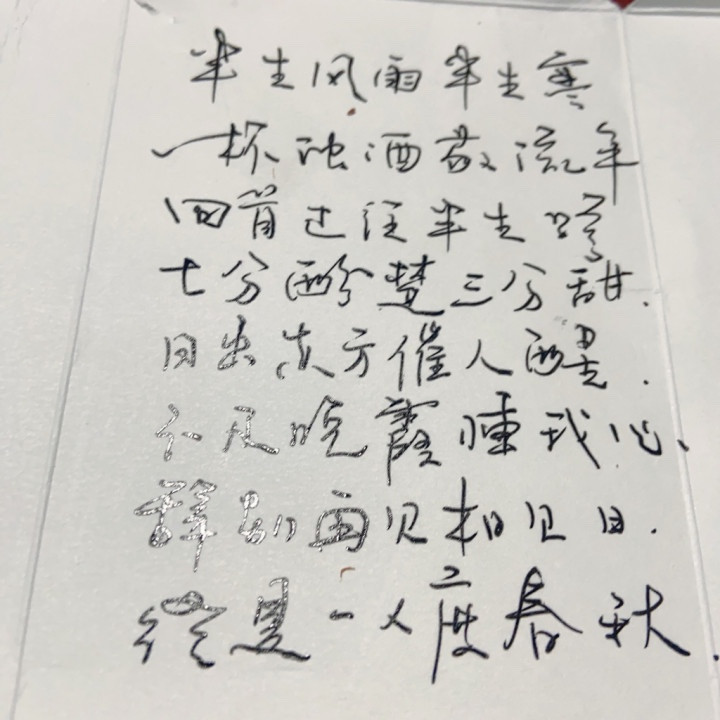 半生风雨半生寒
一杯浊酒敬流年
回首过往半生路
七分酸楚三分甜.
日出东方催人醒.
不及晚霞懂我心、
辞别再见相见日.
终是一又度春秋.